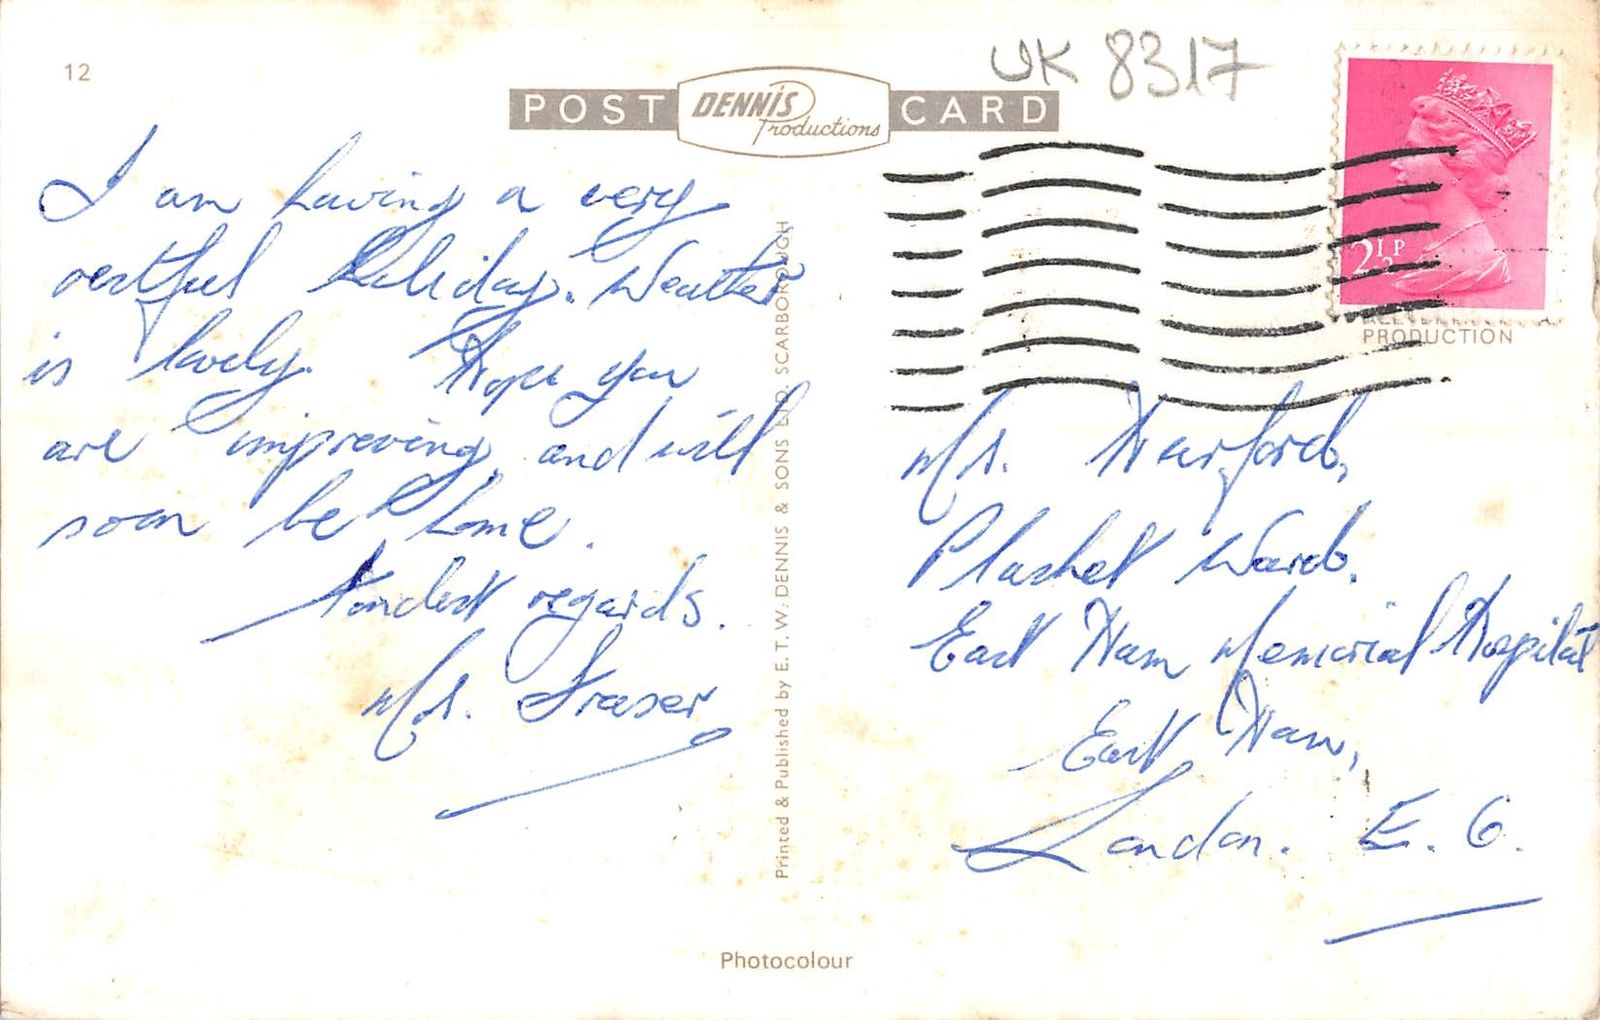 12
UK 8317
POST DENNIS Productions CARD
2½P
PRODUCTION
I am having a very
restful holiday. Weather
is lovely. Hope you
are improving and will
soon be home.
Kindest regards.
Mrs. Fraser
Printed & Published by E. T. W. DENNIS & SONS LTD. SCARBOROUGH
Mrs. Harford,
Plashet Ward.
East Ham Memorial Hospital
East Ham,
London. E. 6.
Photocolour